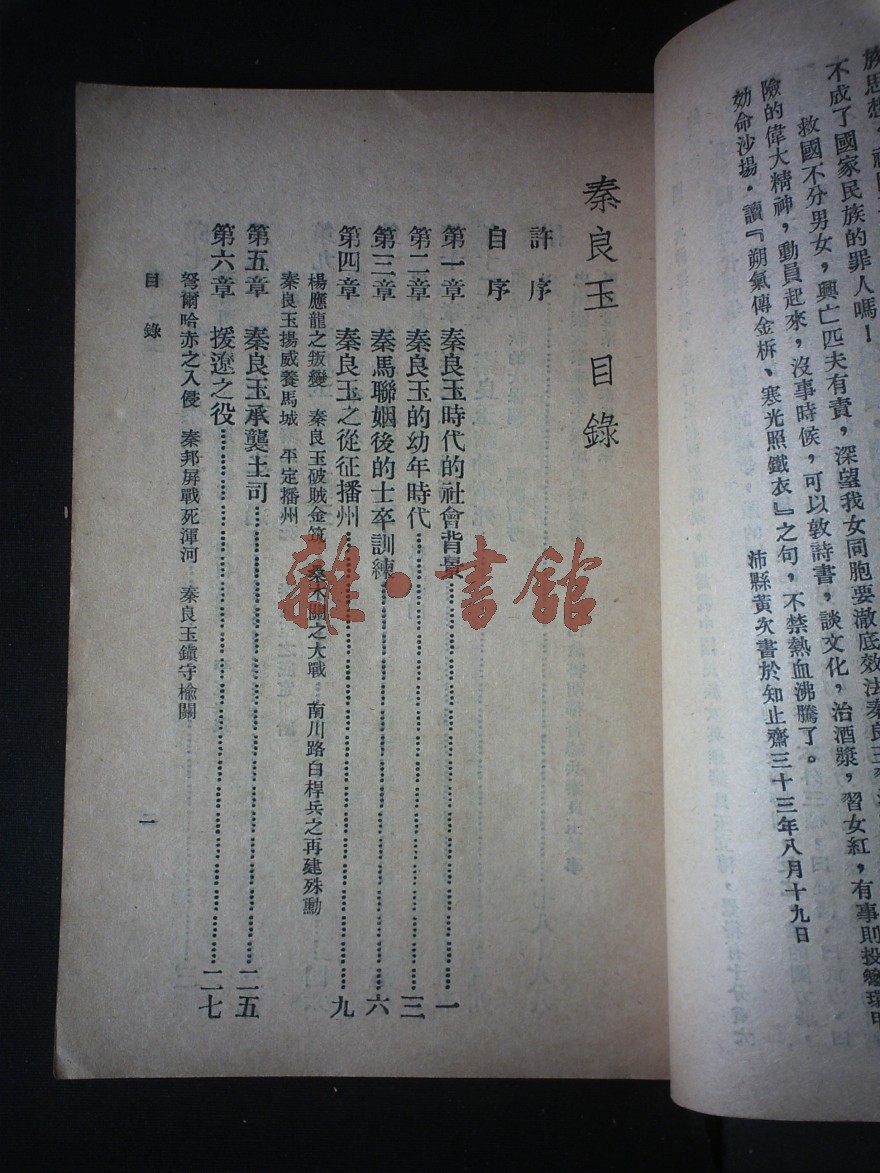 不成了國家民族的罪人嗎！
救國不分男女，興亡匹夫有責，深望我女同胞要澈底效法秦良玉
險的偉大精神，動員起來，沒事時候，可以敦詩書，談文化，治酒漿，習女紅，有事則投
効命沙場。讀『朔氣傳金柝、寒光照鐵衣』之句，不禁熱血沸騰了。
沛縣黃次書於知止齋三十三年八月十九日
秦良玉目錄
許序
自序
第一章 秦良玉時代的社會背景……一
第二章 秦良玉的幼年時代……三
第三章 秦馬聯姻後的士卒訓練……六
第四章 秦良玉之從征播州……九
楊應龍之叛變 秦良玉破賊金筑 桑木關之大戰 南川路白桿兵之再建殊勳
秦良玉揚威養馬城 平定播州
第五章 秦良玉承襲土司……二五
第六章 援遼之役……二七
弩爾哈赤之入侵 秦邦屏戰死渾河 秦良玉鎮守榆關
目錄
一
雜·書館